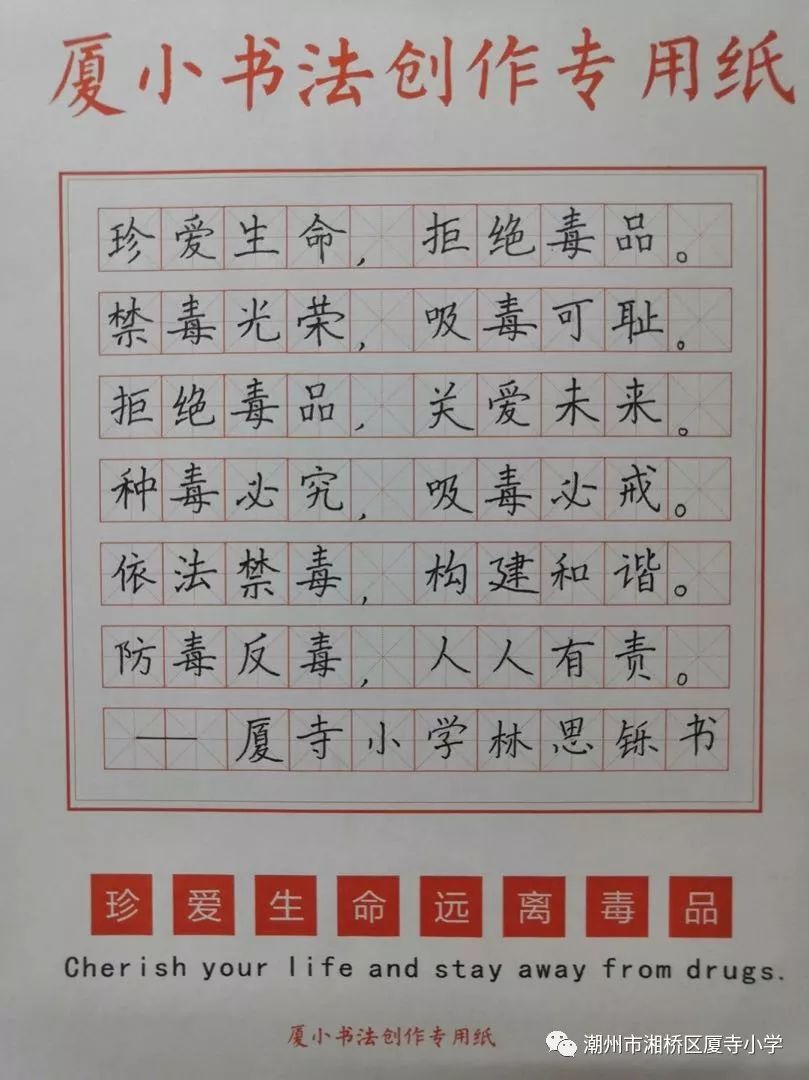 厦小书法创作专用纸
珍爱生命，拒绝毒品。
禁毒光荣，吸毒可耻。
拒绝毒品，关爱未来。
种毒必究，吸毒必戒。
依法禁毒，构建和谐。
防毒反毒，人人有责。
——厦寺小学林思铄书
珍爱生命远离毒品
Cherish your life and stay away from drugs.
厦小书法创作专用纸
潮州市湘桥区厦寺小学